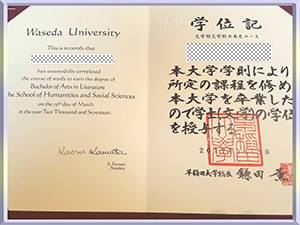 Waseda University
This is to certify that
has successfully completed
the course of study to earn the degree of
Bachelor of Arts in Literature
he School of Humanities and Social Sciences
on the 15th day of March
in the year Two Thousand and Seventeen.
Kaoru Kamata
K. Kamata
President
学位記
本大学学則により
所定の課程を修め
本大学を卒業した
ので学士(文学)の学位
を授与する
早稲田大学総長 鎌田 薫